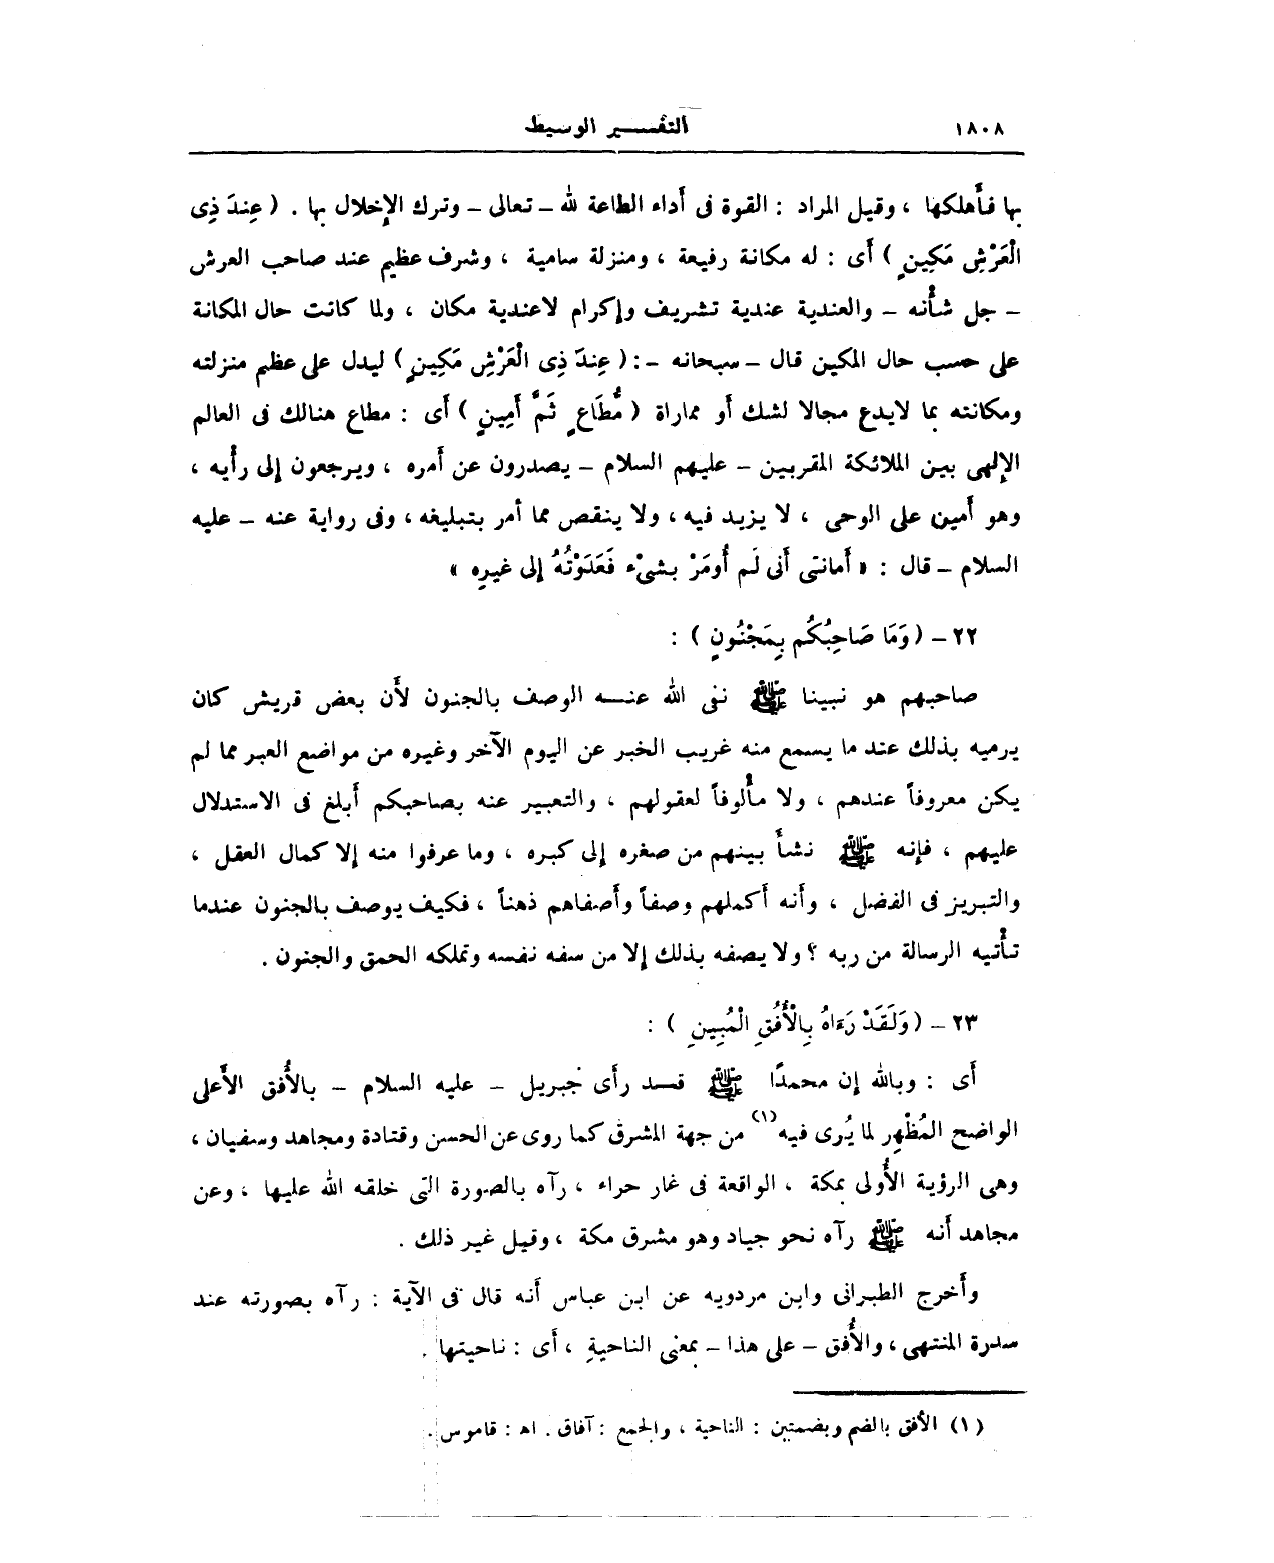 ١٨٠٨ التفسير الوسيط
بها فأهلكها ، وقيل المراد : القوة فى أداء الطاعة لله - تعالى - وترك الإخلال بها . ( عِندَ ذِى
الْعَرْشِ مَكِينٍ ) أى : له مكانة رفيعة ، ومنزلة سامية ، وشرف عظيم عند صاحب العرش
- جل شأنه - والعندية عندية تشريف وإكرام لاعندية مكان ، ولما كانت حال المكانة
على حسب حال المكين قال - سبحانه - : ( عِندَ ذِى الْعَرْشِ مَكِينٍ ) ليدل على عظم منزلته
ومكانته بما لايدع مجالا لشك أو مماراة ( مُّطَاعٍ ثَمَّ أَمِينٍ ) أى : مطاع هنالك فى العالم
الإلهى بين الملائكة المقربين - عليهم السلام - يصدرون عن أمره ، ويرجعون إلى رأيه ،
وهو أمين على الوحى ، لا يزيد فيه ، ولا ينقص مما أمر بتبليغه ، وفى رواية عنه - عليه
السلام - قال : « أمانتى أنى لَم أُومَرْ بشىْء فَعَدَوْتُهُ إلى غيرِه »
٢٢ - ( وَمَا صَاحِبُكُم بِمَجْنُونٍ ) :
صاحبهم هو نبينا ﷺ نفى الله عنه الوصف بالجنون لأن بعض قريش كان
يرميه بذلك عند ما يسمع منه غريب الخبر عن اليوم الآخر وغيره من مواضع العبر مما لم
يكن معروفاً عندهم ، ولا مألوفاً لعقولهم ، والتعبير عنه بصاحبكم أبلغ فى الاستدلال
عليهم ، فإنه ﷺ نشأ بينهم من صغره إلى كبره ، وما عرفوا منه إلا كمال العقل ،
والتبريز فى الفضل ، وأنه أكملهم وصفاً وأصفاهم ذهناً ، فكيف يوصف بالجنون عندما
تأتيه الرسالة من ربه ؟ ولا يصفه بذلك إلا من سفه نفسه وتملكه الحمق والجنون .
٢٣ - ( وَلَقَدْ رَءَاهُ بِالْأُفُقِ الْمُبِينِ ) :
أى : وبالله إن محمدًا ﷺ قد رأى جبريل - عليه السلام - بالأُفق الأَعلى
الواضح المُظْهِر لما يُرى فيه(١) من جهة المشرق كما روى عن الحسن وقتادة ومجاهد وسفيان ،
وهى الرؤية الأُولى بمكة ، الواقعة فى غار حراء ، رآه بالصورة التى خلقه الله عليها ، وعن
مجاهد أنه ﷺ رآه نحو جياد وهو مشرق مكة ، وقيل غير ذلك .
وأخرج الطبرانى وابن مردويه عن ابن عباس أنه قال فى الآية : رآه بصورته عند
سدرة المنتهى ، والأُفق - على هذا - بمعنى الناحية ، أى : ناحيتها .
(١) الأفق بالضم وبضمتين : الناحية ، والجمع : آفاق . اه : قاموس .